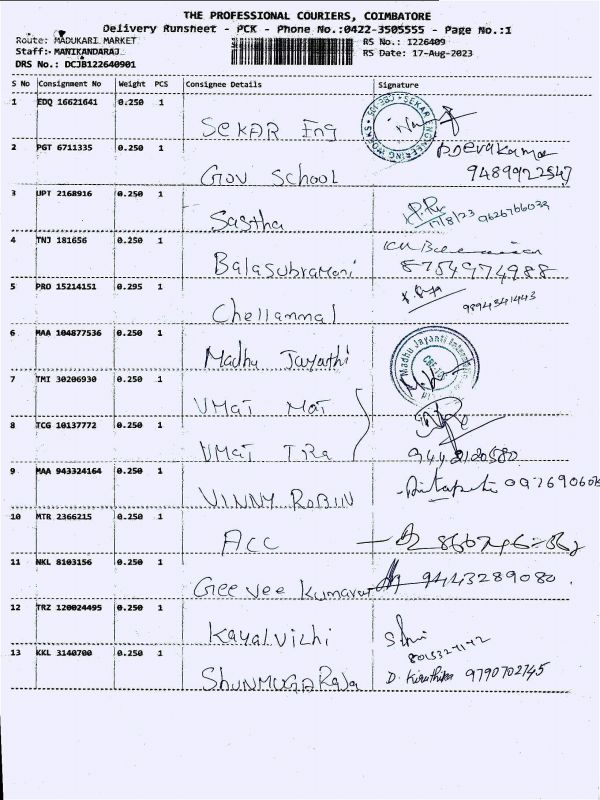 THE PROFESSIONAL COURIERS, COIMBATORE
Delivery Runsheet - PCK - Phone No.:0422-3505555 - Page No.:1
Route: MADUKARI MARKET
Staff: MANIKANDARAJ
DRS No.: DCJB122640901
RS No.: 1226409
RS Date: 17-Aug-2023
S No Consignment No Weight PCS Consignee Details Signature
1 EDQ 16621641 0.250 1 SEKAR Eng
SEKAR ENGINEERING WORKS
2 PGT 6711335 0.250 1 Gov School
9489922547
3 UPT 2168916 0.250 1 Sastha
17/8/23 9626766039
4 TNJ 181656 0.250 1 Balasubramani
8754974988
5 PRO 15214151 0.295 1 Chellammal
9894341443
6 MAA 104877536 0.250 1 Madhu Jayathi
Madhu Jayanti
7 TMI 30206930 0.250 1 UMAT MAT
8 TCG 10137772 0.250 1 UMAT TRA
9442120580
9 MAA 943324164 0.250 1 VINNY ROBIN
10 MTR 2366215 0.250 1 ACC
11 NKL 8103156 0.250 1 Gee Vee Kumaran
9443289080
12 TRZ 120024495 0.250 1 Kayalvizhi
13 KKL 3140700 0.250 1 SHUNMUGA Raja
D. Kiruthika 9790702745